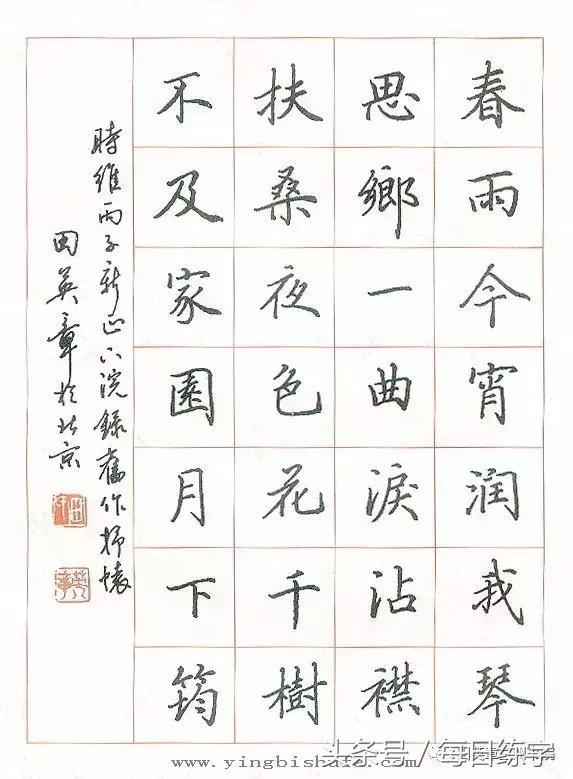 春雨今宵润我琴
思鄉一曲淚沾襟
扶桑夜色花千樹
不及家園月下筠
時維丙子新正六浣錄舊作抒懷
田英章於北京
头条号／每日练字
www.yingbishufa.com